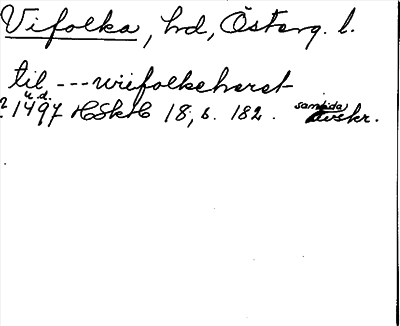 Vifolka, hd, Österg. l.
til --- wifolkeherst
u.d.
? 1497 HSkH 18, s. 182. samtida avskr.